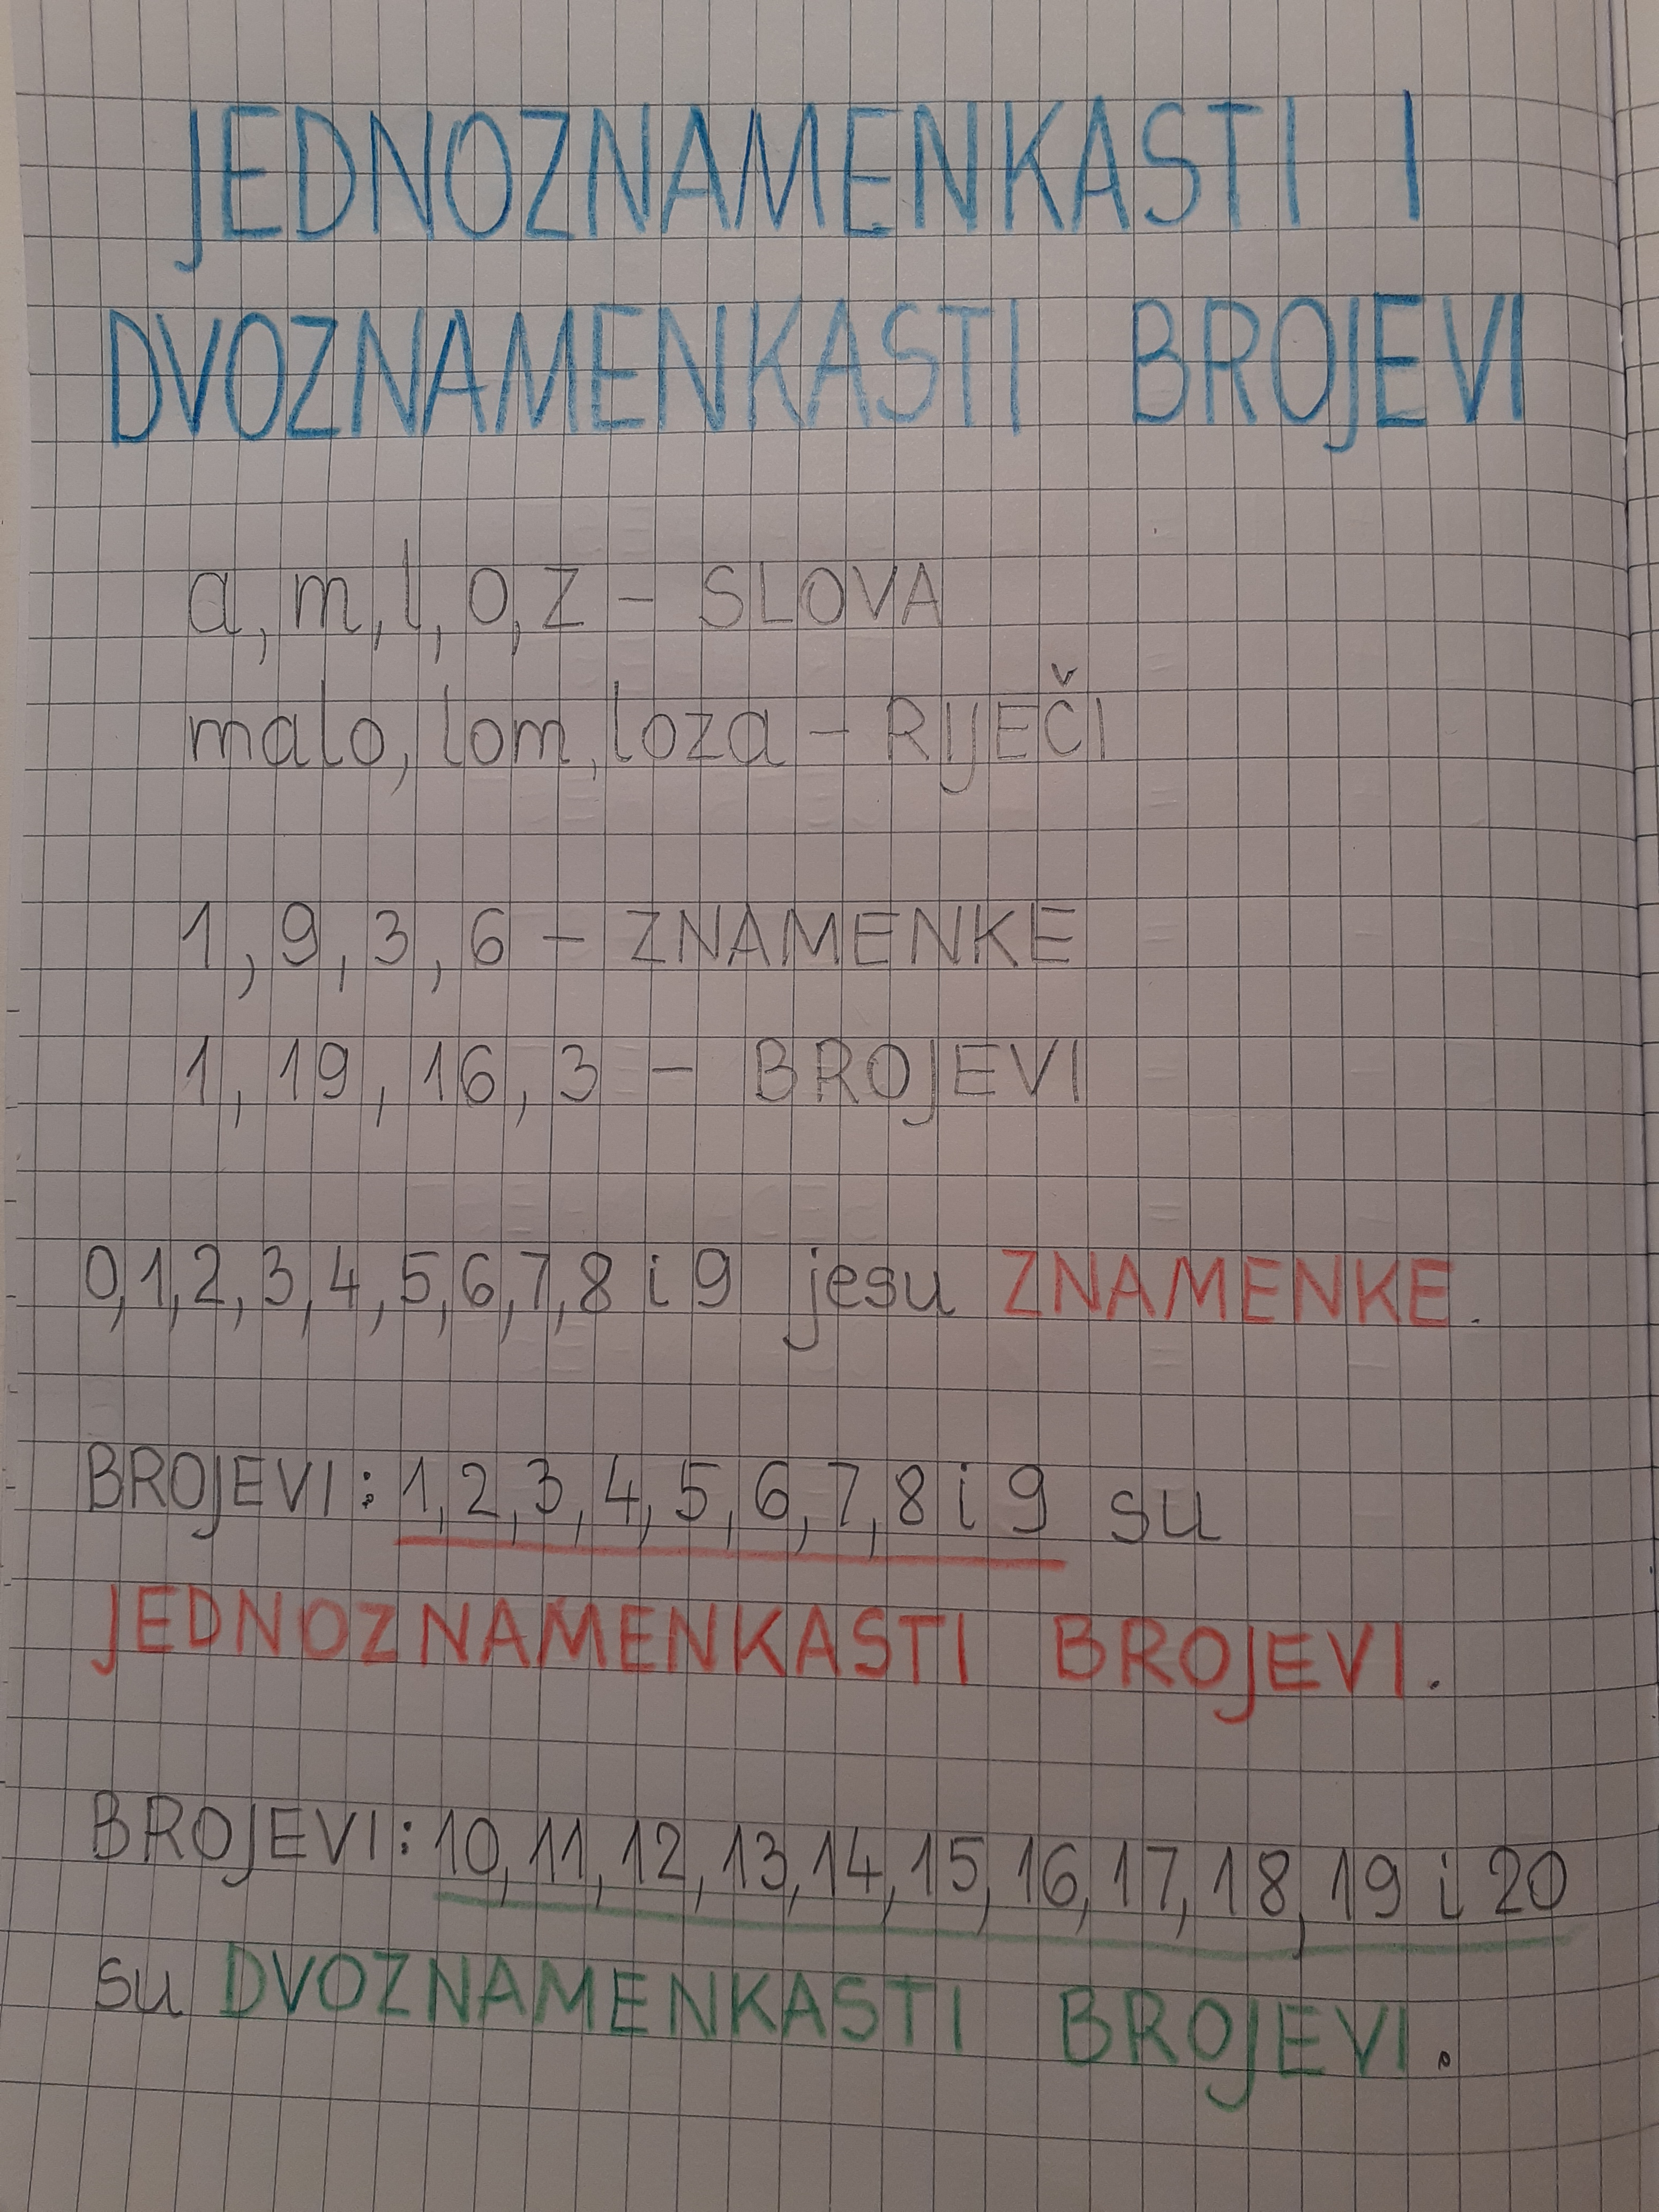 JEDNOZNAMENKASTI I
DVOZNAMENKASTI BROJEVI
a, m, l, o, z - SLOVA
malo, lom, loza - RIJEČI
1, 9, 3, 6 - ZNAMENKE
1, 19, 16, 3 - BROJEVI
0,1,2,3,4,5,6,7,8 i 9 jesu ZNAMENKE.
BROJEVI: 1,2,3,4,5,6,7,8 i 9 su
JEDNOZNAMENKASTI BROJEVI.
BROJEVI: 10,11,12,13,14,15,16,17,18,19 i 20
su DVOZNAMENKASTI BROJEVI.